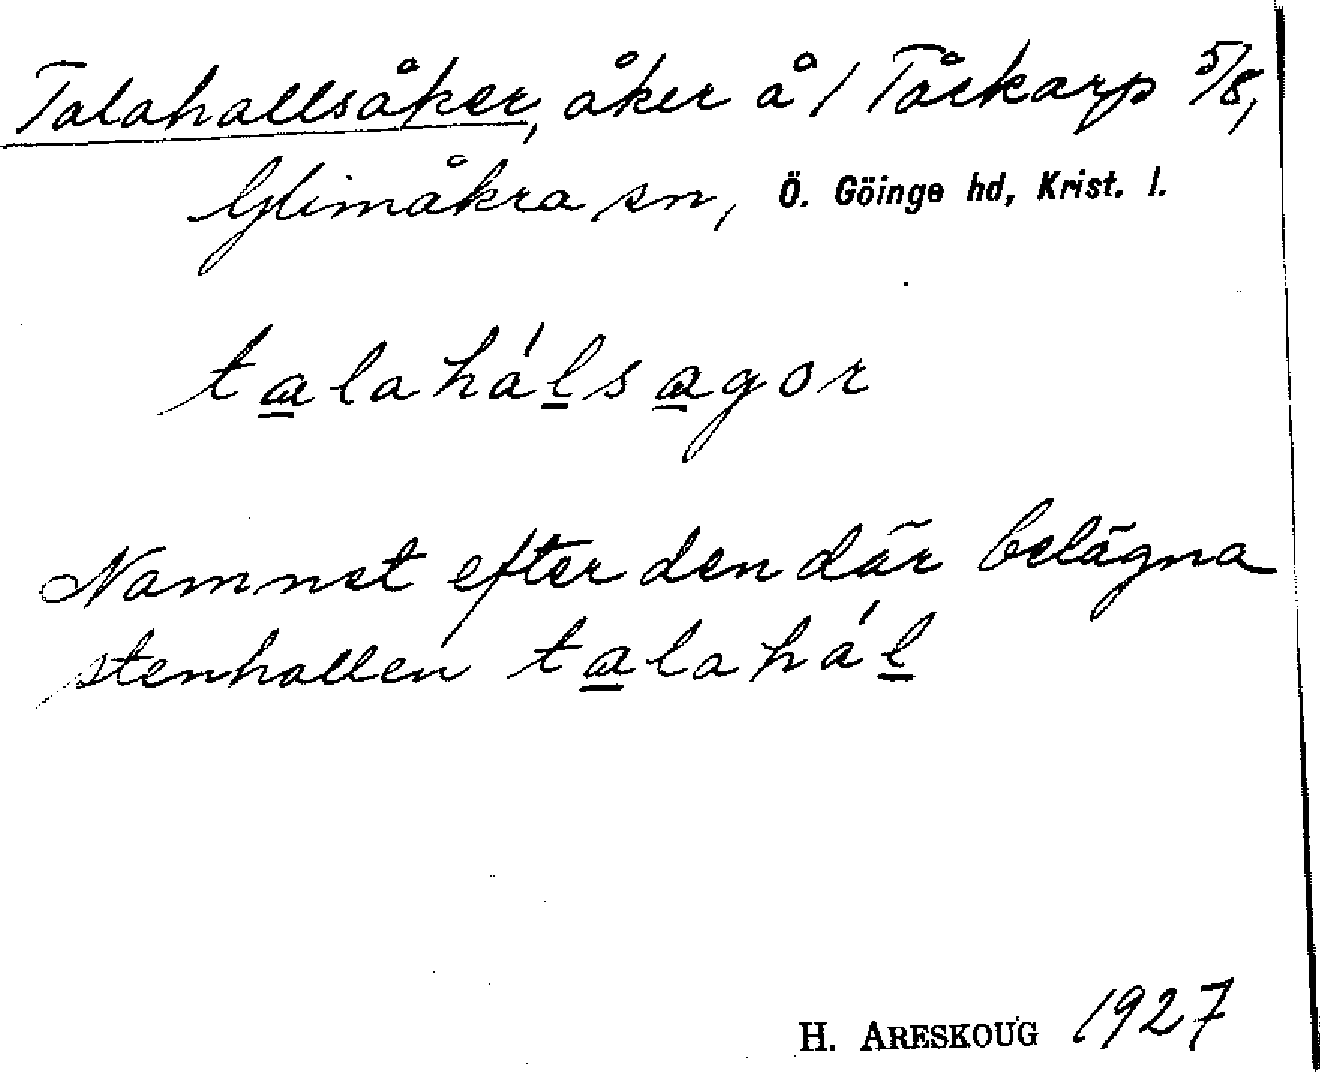 Talahallsåker, åker å 1 Tåckarp 5/8,
Glimåkra sn, Ö. Göinge hd, Krist. l.
talahálsagor
Namnet efter den där belägna
stenhallen talahál
H. ARESKOUG 1927